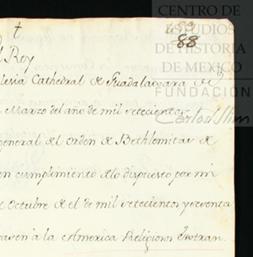 CENTRO DE
ESTUDIOS
DE HISTORIA
DE MEXICO
FUNDACIÓN
Carlos Slim
88
Rey
Cathedral de Guadalaxara
Marzo del año de mil setecientos
general del orden de Bethlemitas de
cumplimiento de lo dispuesto por mi
Octubre de el de mil setecientos y noventa
pasen à la America Religiosos